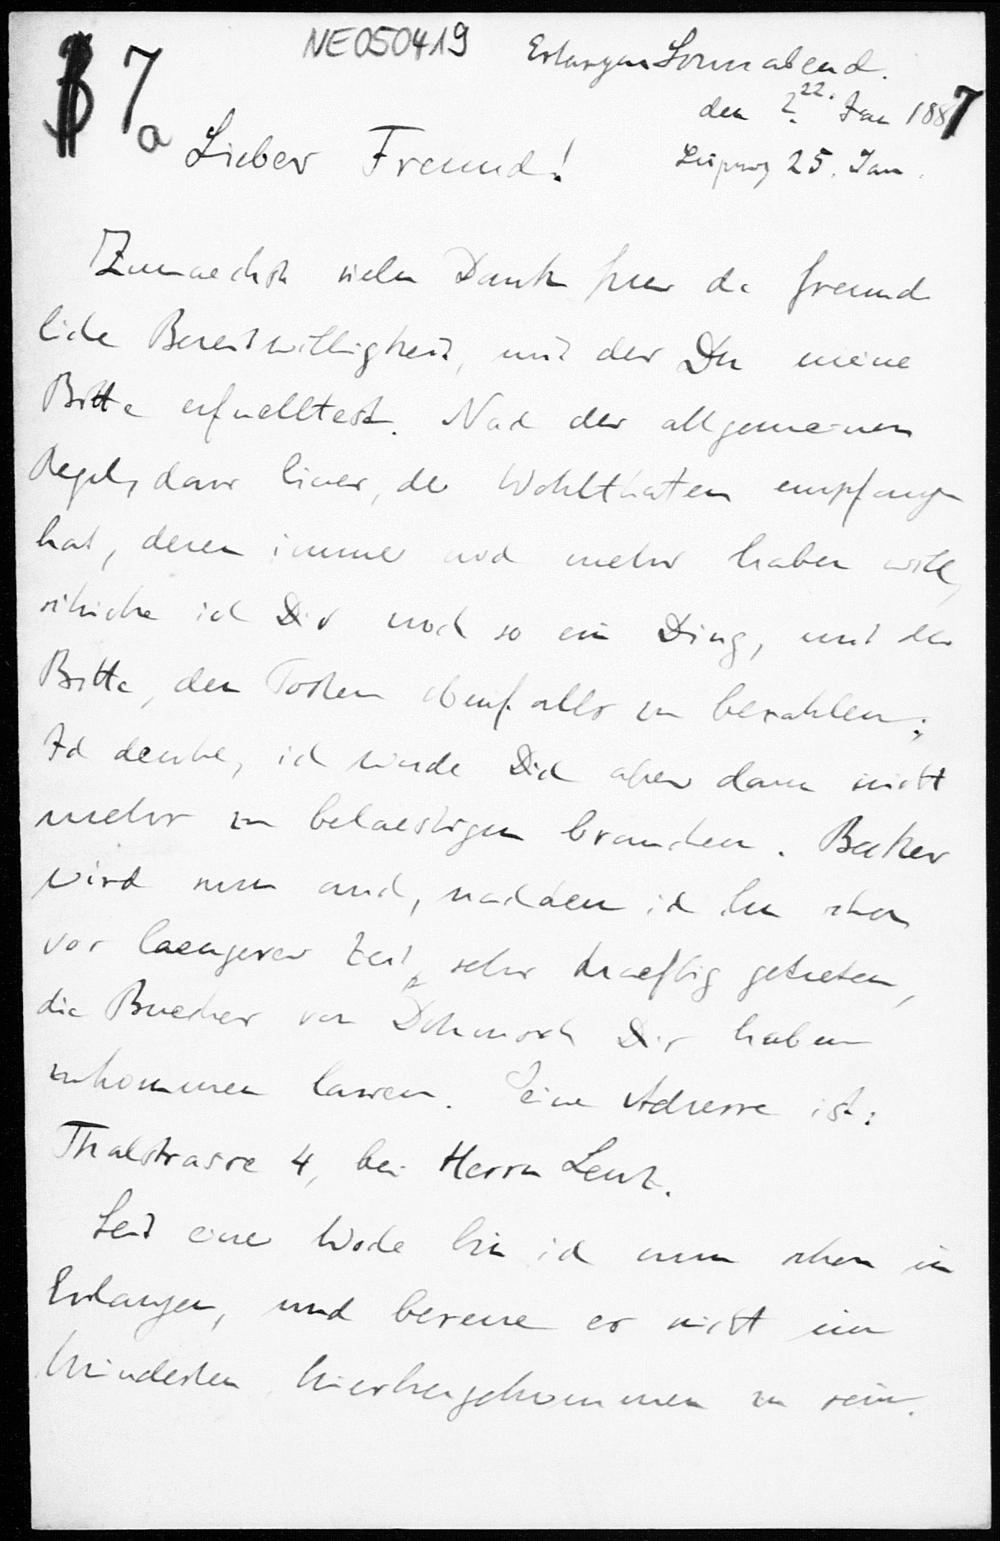 NE050419
7a
Erlangen Sonnabend.
den 22. Jan 1887
Leipzig 25. Jan.
Lieber Freund!
Zunaechst vielen Dank fuer die freund
liche Bereitwilligkeit, mit der Du meine
Bitte erfuelltest. Nach der allgemeinen
Regel, dass Einer, der Wohlthaten empfangen
hat, deren immer noch mehr haben will,
schicke ich Dir noch so ein Ding, mit der
Bitte, den Posten ebenfalls zu bezahlen;
Ich denke, ich werde Dich aber dann nicht
mehr zu belaestigen brauchen. Becker
wird nun auch, nachdem ich ihn schon
vor laengerer Zeit sehr kraeftig getreten,
die Buecher von Dohmosch Dir haben
zukommen lassen. Seine Adresse ist:
Thalstrasse 4, bei Herrn Lenz.
Seit einer Woche bin ich nun schon in
Erlangen, und bereue es nicht im
Mindesten hierhergekommen zu sein.